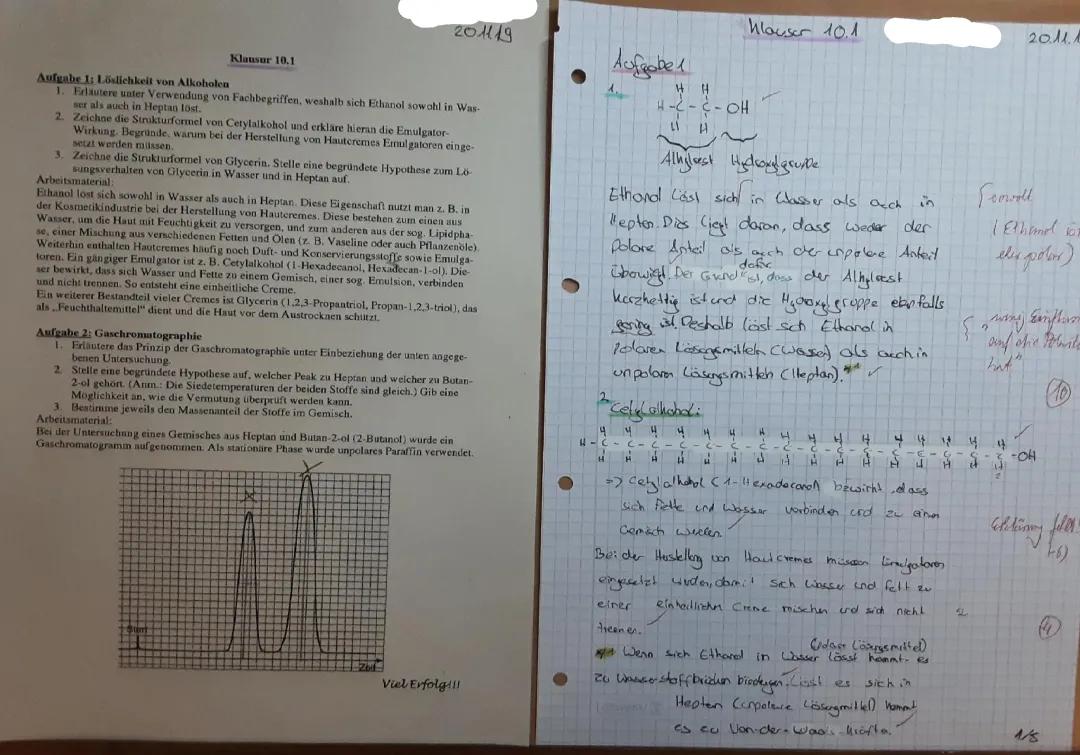 20.11.19
Klausur 10.1
Aufgabe 1: Löslichkeit von Alkoholen
1. Erläutere unter Verwendung von Fachbegriffen, weshalb sich Ethanol sowohl in Was-
ser als auch in Heptan löst.
2. Zeichne die Strukturformel von Cetylalkohol und erkläre hieran die Emulgator-
Wirkung. Begründe, warum bei der Herstellung von Hautcremes Emulgatoren einge-
setzt werden müssen.
3. Zeichne die Strukturformel von Glycerin. Stelle eine begründete Hypothese zum Lö-
sungsverhalten von Glycerin in Wasser und in Heptan auf.
Arbeitsmaterial:
Ethanol löst sich sowohl in Wasser als auch in Heptan. Diese Eigenschaft nutzt man z. B. in
der Kosmetikindustrie bei der Herstellung von Hautcremes. Diese bestehen zum einen aus
Wasser, um die Haut mit Feuchtigkeit zu versorgen, und zum anderen aus der sog. Lipidpha-
se, einer Mischung aus verschiedenen Fetten und Ölen (z. B. Vaseline oder auch Pflanzenöle).
Weiterhin enthalten Hautcremes häufig noch Duft- und Konservierungsstoffe sowie Emulga-
toren. Ein gängiger Emulgator ist z. B. Cetylalkohol (1-Hexadecanol, Hexadecan-1-ol). Die-
ser bewirkt, dass sich Wasser und Fette zu einem Gemisch, einer sog. Emulsion, verbinden
und nicht trennen. So entsteht eine einheitliche Creme.
Ein weiterer Bestandteil vieler Cremes ist Glycerin (1,2,3-Propantriol, Propan-1,2,3-triol), das
als „Feuchthaltemittel" dient und die Haut vor dem Austrocknen schützt.
Aufgabe 2: Gaschromatographie
1. Erläutere das Prinzip der Gaschromatographie unter Einbeziehung der unten angege-
benen Untersuchung.
2. Stelle eine begründete Hypothese auf, welcher Peak zu Heptan und welcher zu Butan-
2-ol gehört. (Anm.: Die Siedetemperaturen der beiden Stoffe sind gleich.) Gib eine
Möglichkeit an, wie die Vermutung überprüft werden kann.
3. Bestimme jeweils den Massenanteil der Stoffe im Gemisch.
Arbeitsmaterial:
Bei der Untersuchung eines Gemisches aus Heptan und Butan-2-ol (2-Butanol) wurde ein
Gaschromatogramm aufgenommen. Als stationäre Phase wurde unpolares Paraffin verwendet.
X
Y
Start
Zeit
Viel Erfolg!!!
Klausur 10.1
20.11.1
Aufgabe 1
1.
H H
H-C-C-OH
H H
Alkylrest Hydroxylgruppe
Ethanol löst sich in Wasser als auch in
Heptan. Dies liegt daran, dass weder der
polare Anteil als auch der unpolare Anteil
überwigt. Der Grund dafür ist, dass der Alkylrest
kurzkettig ist und die Hydroxylgruppe ebenfalls
gering ist. Deshalb löst sich Ethanol in
polaren Lösungsmitteln (Wasser) als auch in
unpolaren Lösungsmitteln (Heptan).
sowohl
(Ethanol ist
eher polar)
auf die
hat"
10
2.
Cetylalkohol:
H H H H H H H H H H H H H H H
H-C-C-C-C-C-C-C-C-C-C-C-C-C-C-C-OH
H H H H H H H H H H H H H H H
2
=> Cetylalkohol (1-Hexadecanol) bewirkt, dass
sich Fette und Wasser verbinden und zu einem
Gemisch werden.
Erklärung fehlt
(-6)
Bei der Herstellung von Hautcremes müssen Emulgatoren
eingesetzt werden, damit sich Wasser und Fett zu
einer einheitlichen Creme mischen und sich nicht
2
trennen.
4
(polares Lösungsmittel)
Wenn sich Ethanol in Wasser lösst kommt es
zu Wasserstoffbrücken bindungen. Löst es sich in
Heptan (unpolares Lösungmittel) kommt
es zu Van-der-Waals-Kräfte.
1/5